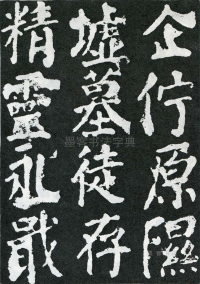 企佇原隰
墟墓徒存
精靈永戢
墨客书法字典